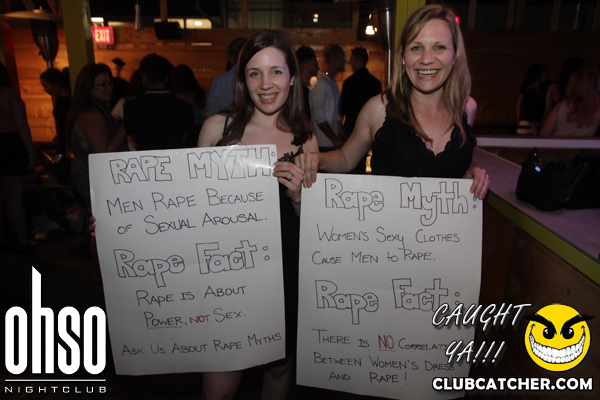 EXIT
RAPE MYTH:
MEN RAPE BECAUSE
OF SEXUAL AROUSAL.
Rape Fact:
RAPE IS ABOUT
POWER, NOT SEX.
ASK US ABOUT RAPE MYTHS
Rape Myth:
WOMEN'S SEXY CLOTHES
CAUSE MEN TO RAPE.
Rape Fact:
THERE IS NO CORRELATION
BETWEEN WOMEN'S DRESS
AND RAPE!
ohso
NIGHTCLUB
CAUGHT
YA!!!
CLUBCATCHER.COM